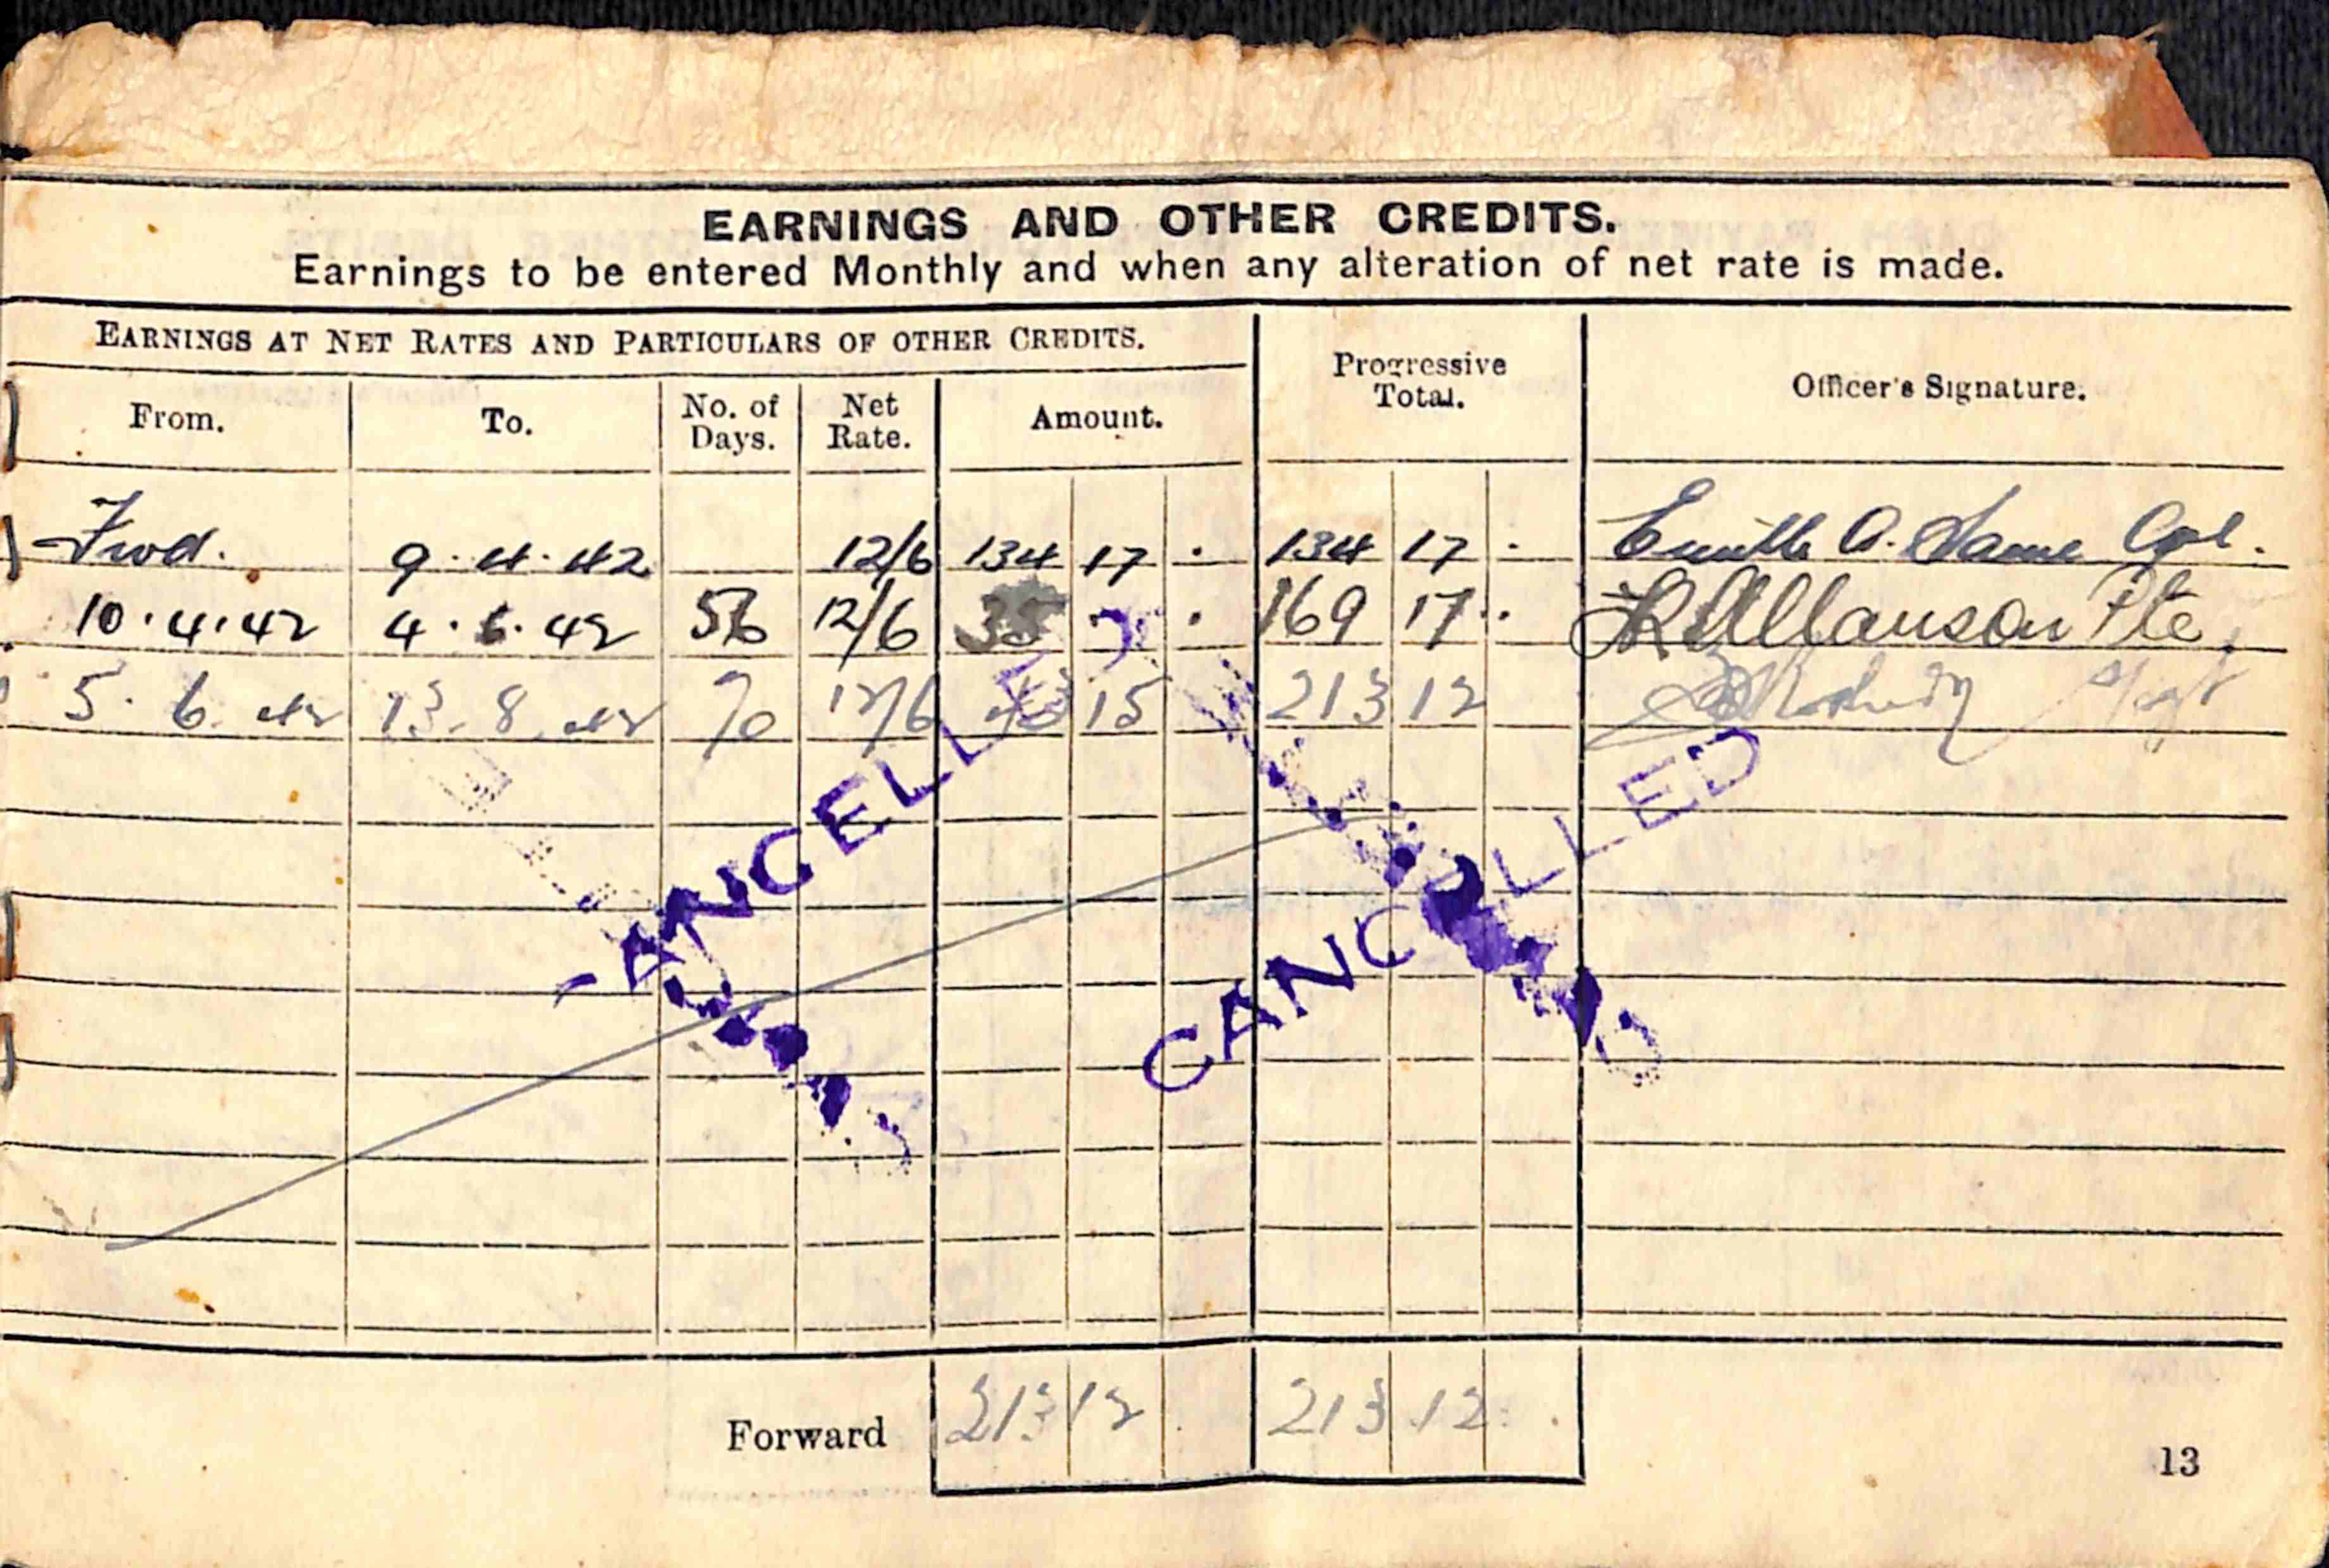 EARNINGS AND OTHER CREDITS.
Earnings to be entered Monthly and when any alteration of net rate is made.
EARNINGS AT NET RATES AND PARTICULARS OF OTHER CREDITS.
Progressive Total.
Officer's Signature.
From. To. No. of Days. Net Rate. Amount.
Fwd. 9.4.42 12/6 134 17 . 134 17 . A. Cpl.
10.4.42 4.6.42 56 12/6 35 - . 169 17 . Pte
5.6.42 13.8.42 70 12/6 43 15 213 12
CANCELLED
CANCELLED
Forward 213 12 . 213 12 .
13